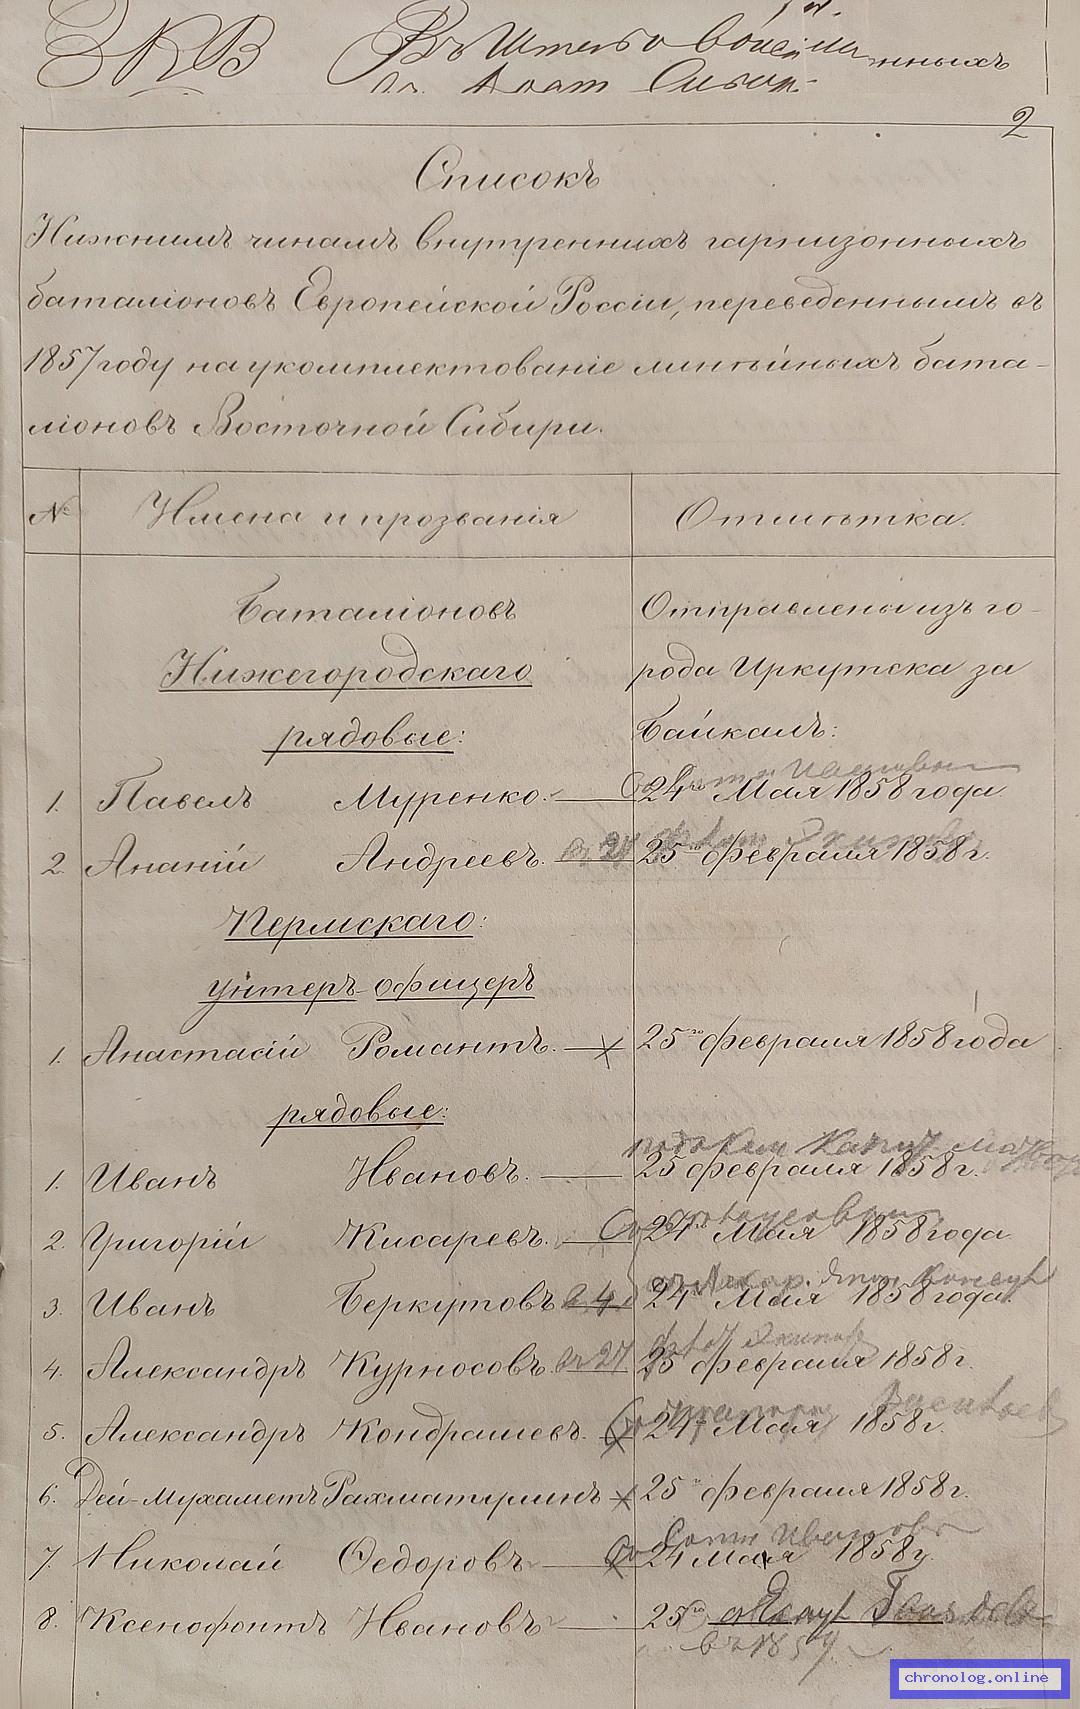 Въ Штабъ
2
Списокъ
Нижнимъ чинамъ внутреннихъ гарнизонныхъ
баталіоновъ Европейской Россіи, переведеннымъ въ
1857 году на укомплектованіе линѣйныхъ бата-
ліоновъ Восточной Сибири.
№ Имена и прозванія Отмѣтка.
Баталіоновъ Отправлены изъ го-
Нижегородскаго рода Иркутска за
рядовые: Байкалъ:
1. Павелъ Муренко. 24го Мая 1858 года
2. Ананій Андреевъ. 25го февраля 1858 г.
Пермскаго:
унтеръ-офицеръ
1. Анастасій Романтъ. 25го февраля 1858 года
рядовые:
1. Иванъ Ивановъ. 25 февраля 1858 г.
2. Григорій Кисаревъ. 24го Мая 1858 года
3. Иванъ Беркутовъ 24 Мая 1858 года.
4. Александръ Курносовъ. 25 февраля 1858 г.
5. Александръ Кондрашевъ. 24 Мая 1858 г.
6. Дей-Мухаметъ Рахматулинъ 25го февраля 1858 г.
7. Николай Ѳедоровъ 24 Мая 1858 г.
8. Ксенофонтъ Ивановъ 25го
въ 1857
chronolog.online